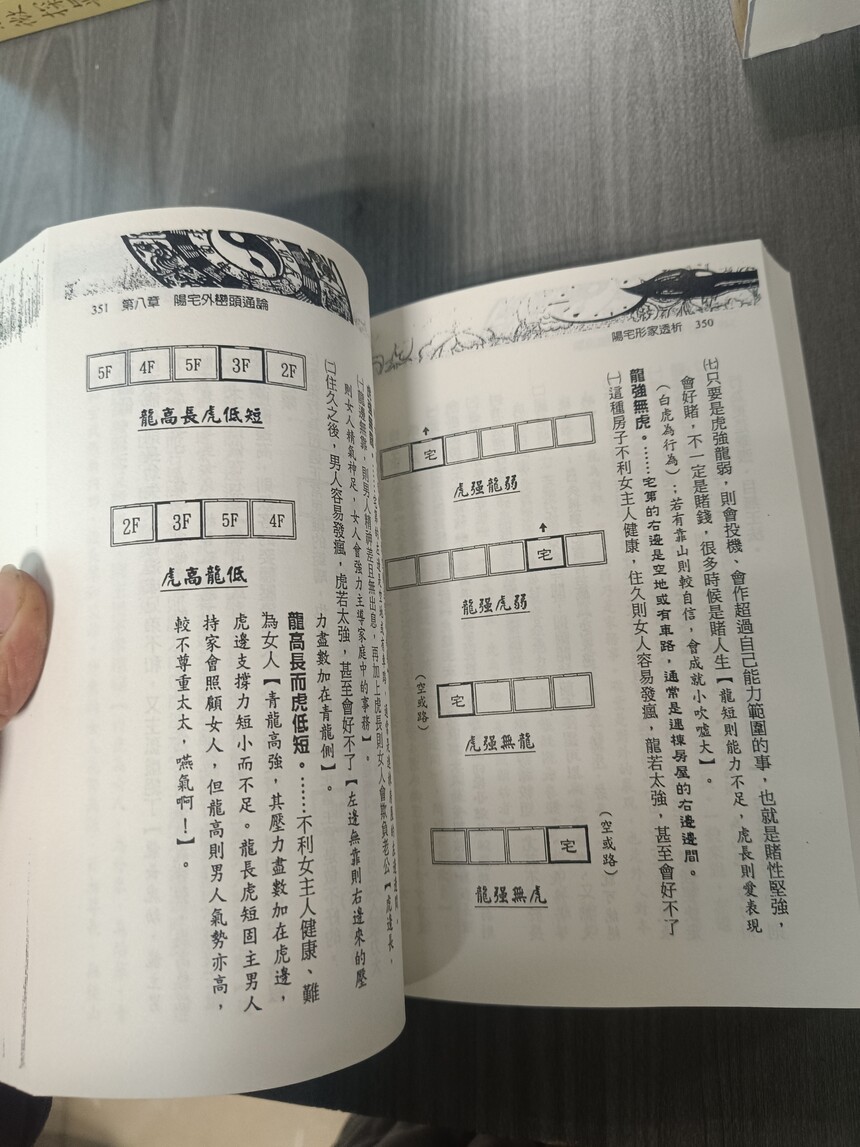 陽宅形家透析 350
㈦只要是虎強龍弱，則會投機、會作超過自己能力範圍的事，也就是賭性堅強，
會好賭，不一定是賭錢，很多時候是賭人生【龍短則能力不足，虎長則愛表現
（白虎為行為）；若有靠山則較自信，會成就小吹噓大】。
龍強無虎。……宅第的右邊是空地或有車路，通常是連棟房屋的右邊邊間。
㈠這種房子不利女主人健康，住久則女人容易發瘋，龍若太強，甚至會好不了
宅
虎强龍弱
宅
龍强虎弱
宅
（空或路）
虎强無龍
宅
（空或路）
龍强無虎
351 第八章 陽宅外巒頭通論
㈠龍邊無靠，則男人精神差且無出息，再加上虎長則女人會欺負老公【虎邊長，
則女人精氣神足，女人會強力主導家庭中的事務】。
㈡住久之後，男人容易發瘋，虎若太強，甚至會好不了【左邊無靠則右邊來的壓
力盡數加在青龍側】。
龍高長而虎低短。……不利女主人健康、難
為女人【青龍高強，其壓力盡數加在虎邊，
虎邊支撐力短小而不足。龍長虎短固主男人
持家會照顧女人，但龍高則男人氣勢亦高，
較不尊重太太，嚥氣啊！】。
5F 4F 5F 3F 2F
龍高長虎低短
2F 3F 5F 4F
虎高龍低